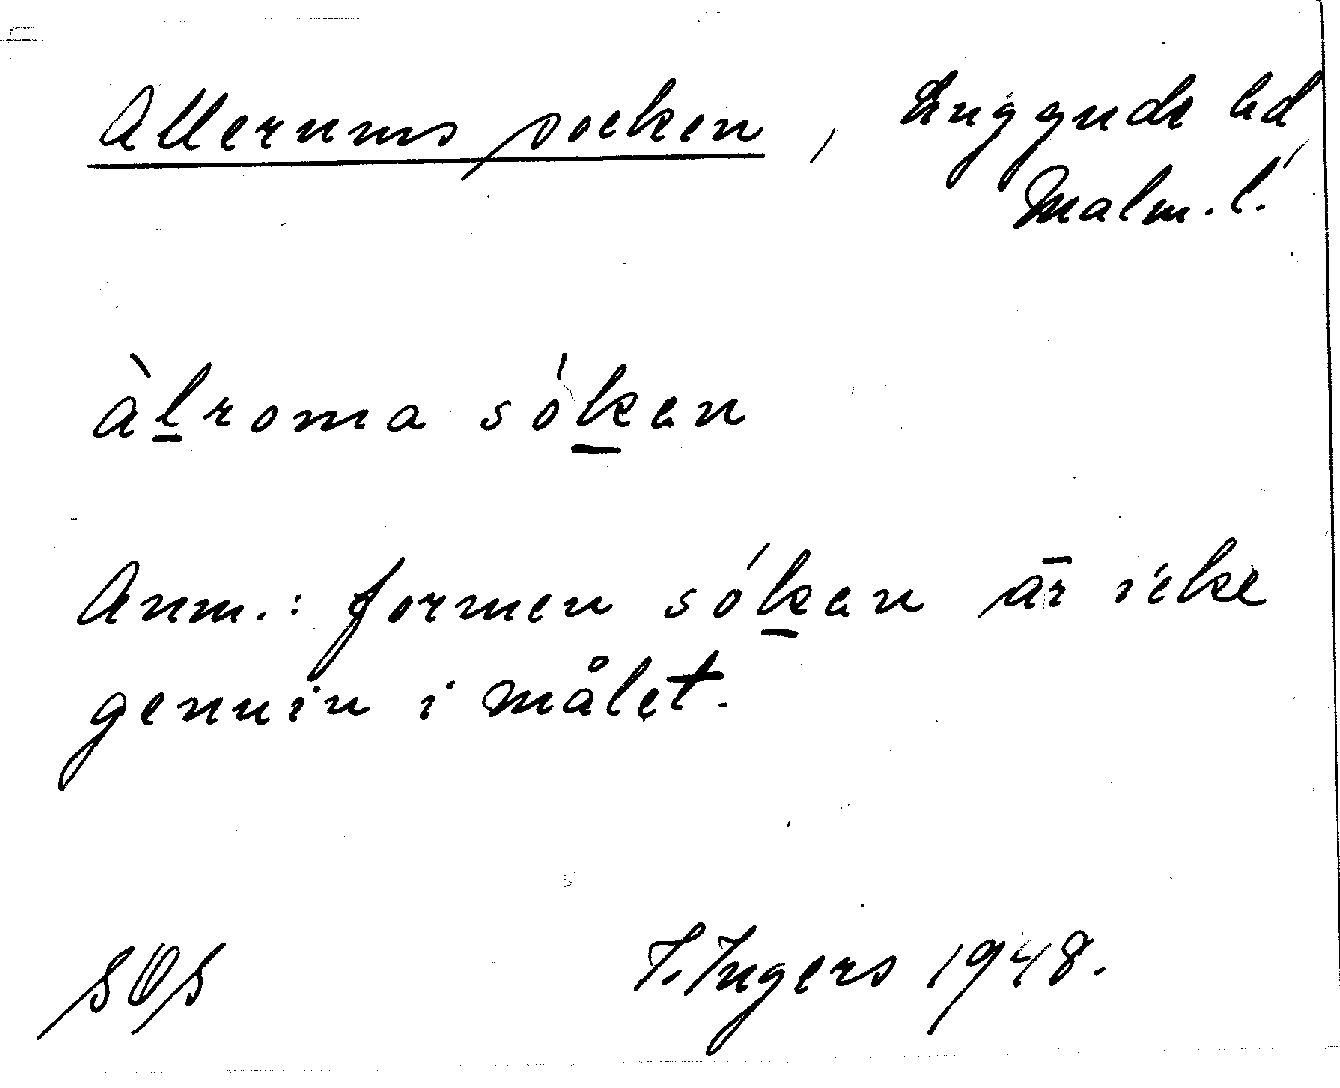 Allerums socken, Luggude hd
Malm. l.
àl̲roma sók̲en
Anm.: formen sók̲en är icke
genuin i målet.
SOS I. Ingers 1948.